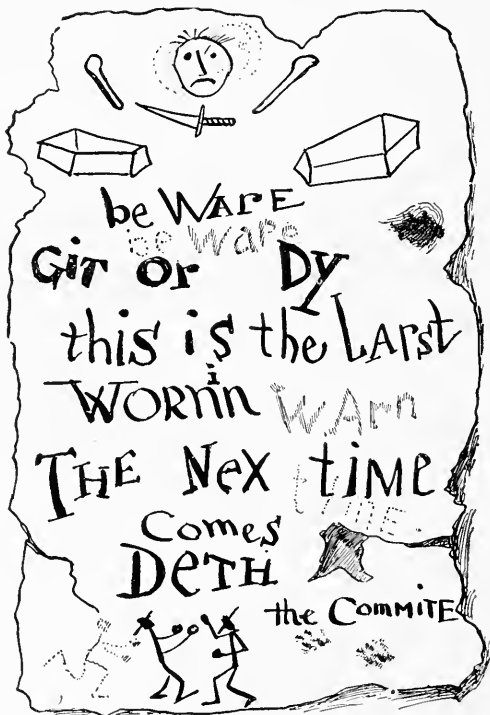 be WArE
be Ware
GiT or Dy
this is the LArst
WORn'n i WArn
THE Nex time
time
Comes
DeTH
the CommiTE